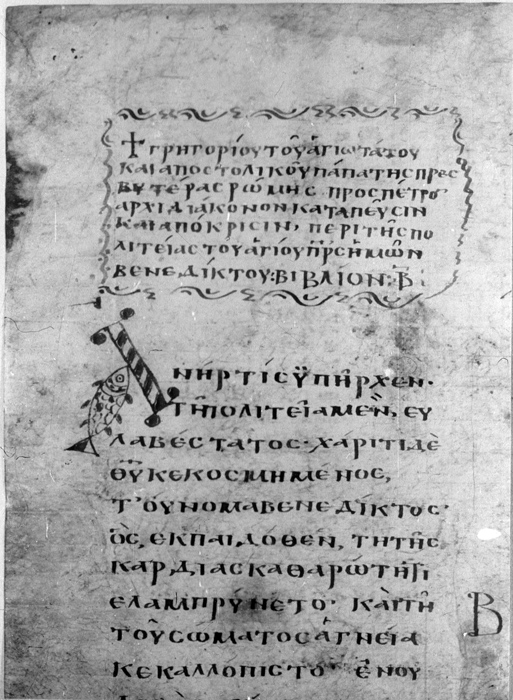 † ΓΡΗΓΟΡΊΟΥ ΤΟΥ͂ ἉΓΙΩΤΆΤΟΥ
ΚΑῚ ΑΠΟΣΤΟΛΙΚΟΥ͂ ΠΆΠΑ ΤΗ͂Σ ΠΡΕΣ
ΒΥΤΈΡΑΣ ΡΏΜΗΣ· ΠΡΟΣ ΠΈΤΡΟΝ
ΑΡΧΙΔΙΆΚΟΝΟΝ ΚΑΤΑ ΠΕΥ͂ΣΙΝ
ΚΑῚ ΑΠΌΚΡΙΣΙΝ, ΠΕΡῚ ΤΗ͂Σ ΠΟ
ΛΙΤΕΊΑΣ ΤΟΥ͂ ἉΓΊΟΥ Π̅Ρ̅Σ̅ ἩΜΩ͂Ν
ΒΕΝΕΔΊΚΤΟΥ: ΒΙΒΛΊΟΝ: Β̅:
ἈΝΉΡ ΤΙΣ ΫΠΗ͂ΡΧΕΝ·
ΤΗ͂ ΠΟΛΙΤΕΊΑ ΜῈΝ, ΕΥ
ΛΑΒΈΣΤΑΤΟΣ· ΧΆΡΙΤΙ ΔΕ
Θ̅Υ̅ ΚΕΚΟΣΜΗΜΈΝΟΣ,
Τ' ΟΥΝΟΜΑ ΒΕΝΕΔΊΚΤΟΣ·
ὋΣ, ΕΚ ΠΑΙΔΌΘΕΝ, ΤΗ ΤΗ͂Σ
ΚΑΡΔΊΑΣ ΚΑΘΑΡΏΤΗΤΙ
ΕΛΑΜΠΡΎΝΕΤΟ· ΚΑῚ ΤΗ͂
ΤΟΥ͂ ΣΏΜΑΤΟΣ ἉΓΝΕΊΑ
Β
ΚΕΚΑΛΛΌΠΙΣΤΟ· ΕΝ ΟΥ